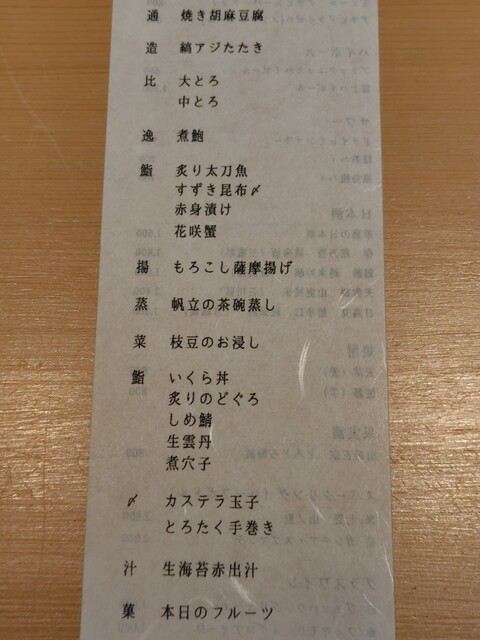 通 焼き胡麻豆腐
造 縞アジたたき
比 大とろ
中とろ
逸 煮鮑
鮨 炙り太刀魚
すずき昆布〆
赤身漬け
花咲蟹
揚 もろこし薩摩揚げ
蒸 帆立の茶碗蒸し
菜 枝豆のお浸し
鮨 いくら丼
炙りのどぐろ
しめ鯖
生雲丹
煮穴子
〆 カステラ玉子
とろたく手巻き
汁 生海苔赤出汁
菓 本日のフルーツ